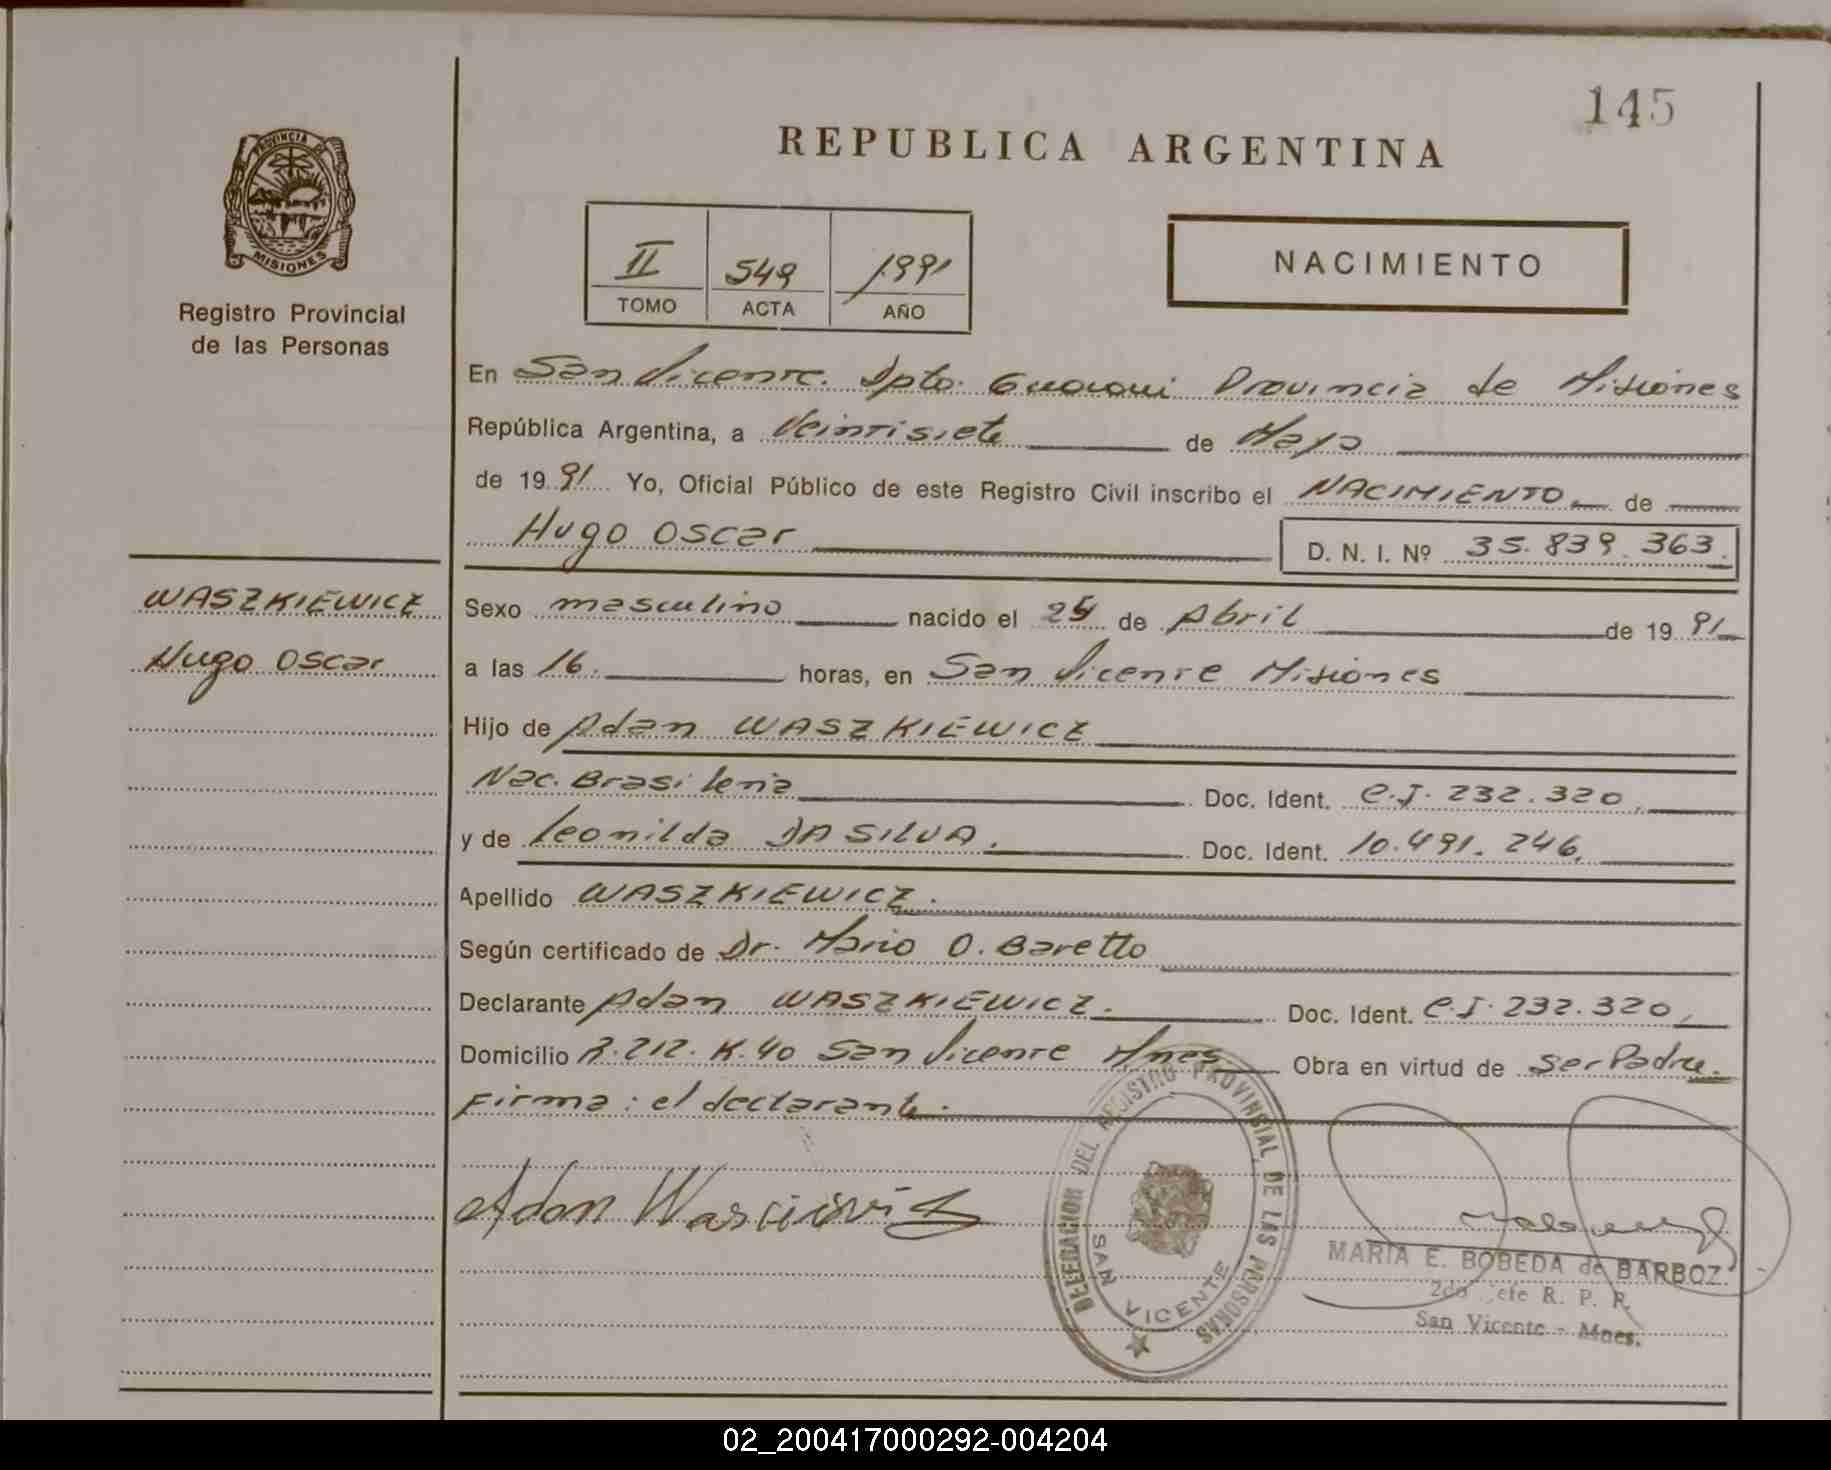 145
REPUBLICA ARGENTINA
PROVINCIA DE
MISIONES
Registro Provincial
de las Personas
II 549 1991
TOMO ACTA AÑO
NACIMIENTO
En San Vicente. Dpto. Guarani Provincia de Misiones
República Argentina, a Veintisiete de Mayo
de 1991 Yo, Oficial Público de este Registro Civil inscribo el NACIMIENTO de
Hugo Oscar D. N. I. Nº 35.839.363.
WASZKIEWICZ
Hugo Oscar
Sexo masculino nacido el de Abril de 1991
a las 16. horas, en San Vicente Misiones
Hijo de Adan WASZKIEWICZ
Nac. Brasileña Doc. Ident. C.I. 232.320.
y de Leonilda DA SILVA. Doc. Ident. 10.491.246.
Apellido WASZKIEWICZ.
Según certificado de Dr. Mario O. Baretto
Declarante Adan WASZKIEWICZ. Doc. Ident. C.I. 232.320.
Domicilio R.212. K.40 San Vicente Mnes Obra en virtud de Ser Padre.
Firma: el declarante.
Adan
DELEGACION DEL REGISTRO PROVINSIAL DE LAS PERSONAS
SAN VICENTE
MARIA E. BOBEDA de BARBOZ
2do Jefe R. P. P.
San Vicente - Mnes.
02_200417000292-004204